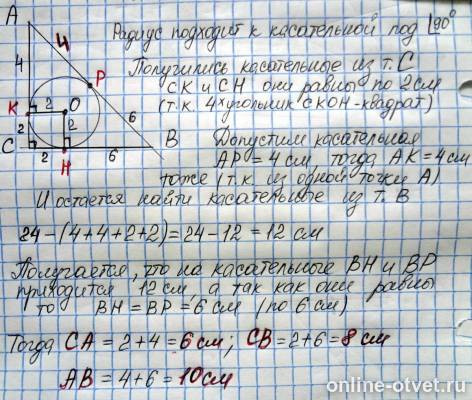 A
4
4
Радиус подходит к касательной под 90°
Получились касательные из т. C
CK и CH они равны по 2 см
(т.к. 4хугольник CKOH-квадрат)
P
K
2
O
2
2
6
C
2
H
6
B
Допустим касательная
AP = 4 см, тогда AK = 4 см
тоже (т.к. из одной точки A)
И остается найти касательные из т. B
24-(4+4+2+2)=24-12=12 см
Получается, что на касательные BH и BP
приходится 12 см, а так как они равны
то BH=BP=6 см (по 6 см)
Тогда CA = 2+4 = 6 см; CB = 2+6 = 8 см
AB = 4+6 = 10 см
online-otvet.ru